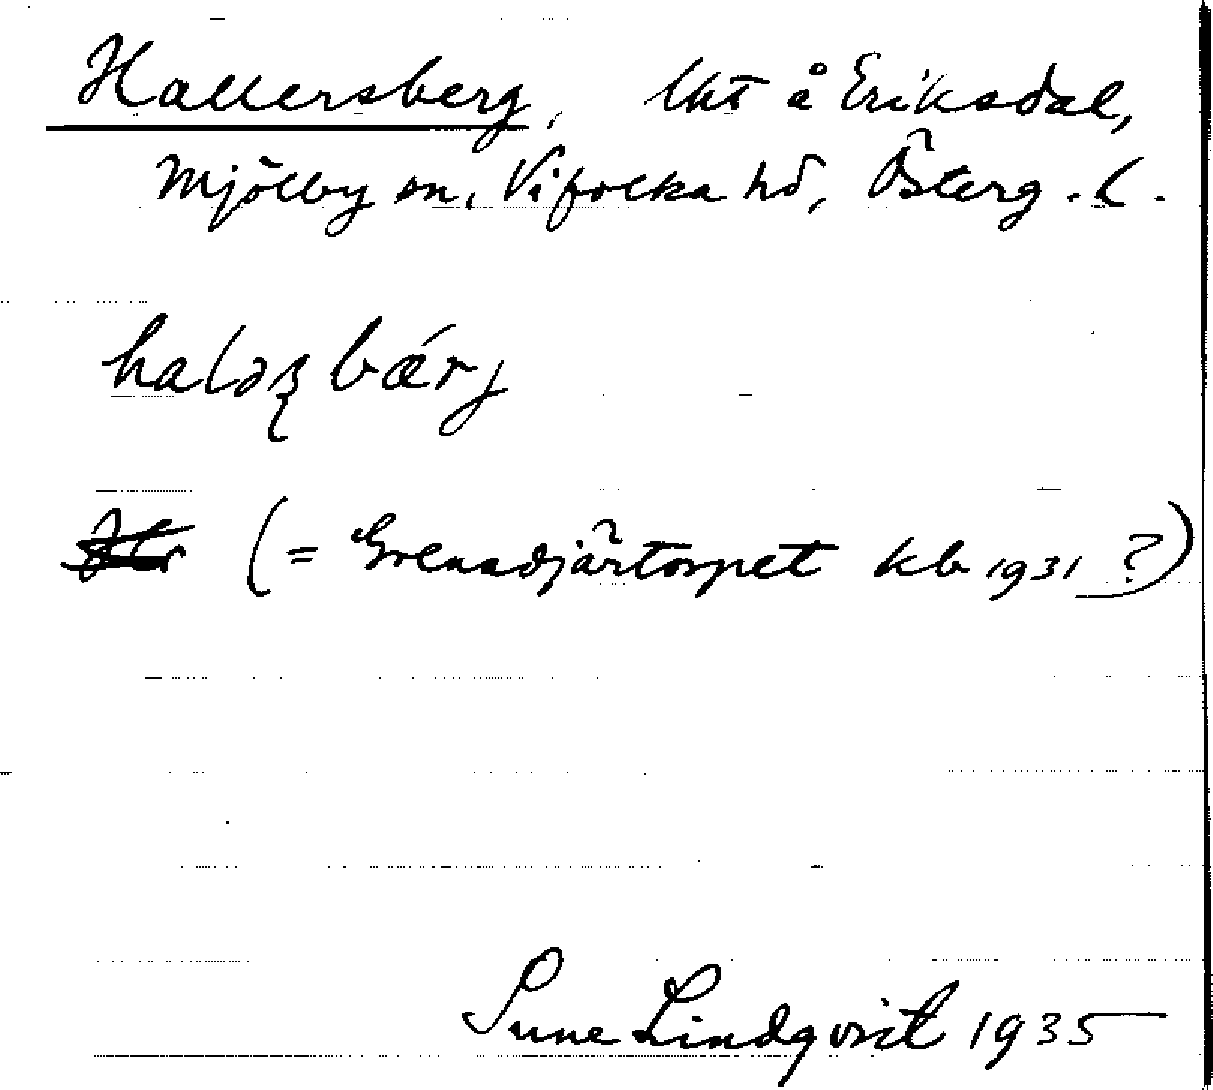 Hallersberg, lht å Eriksdal,
Mjölby sn, Vifolka hd, Österg. l.
haləʂbǽrj
(= Grensadjärtorpet kb 1931 ?)
Sune Lindqvist 1935